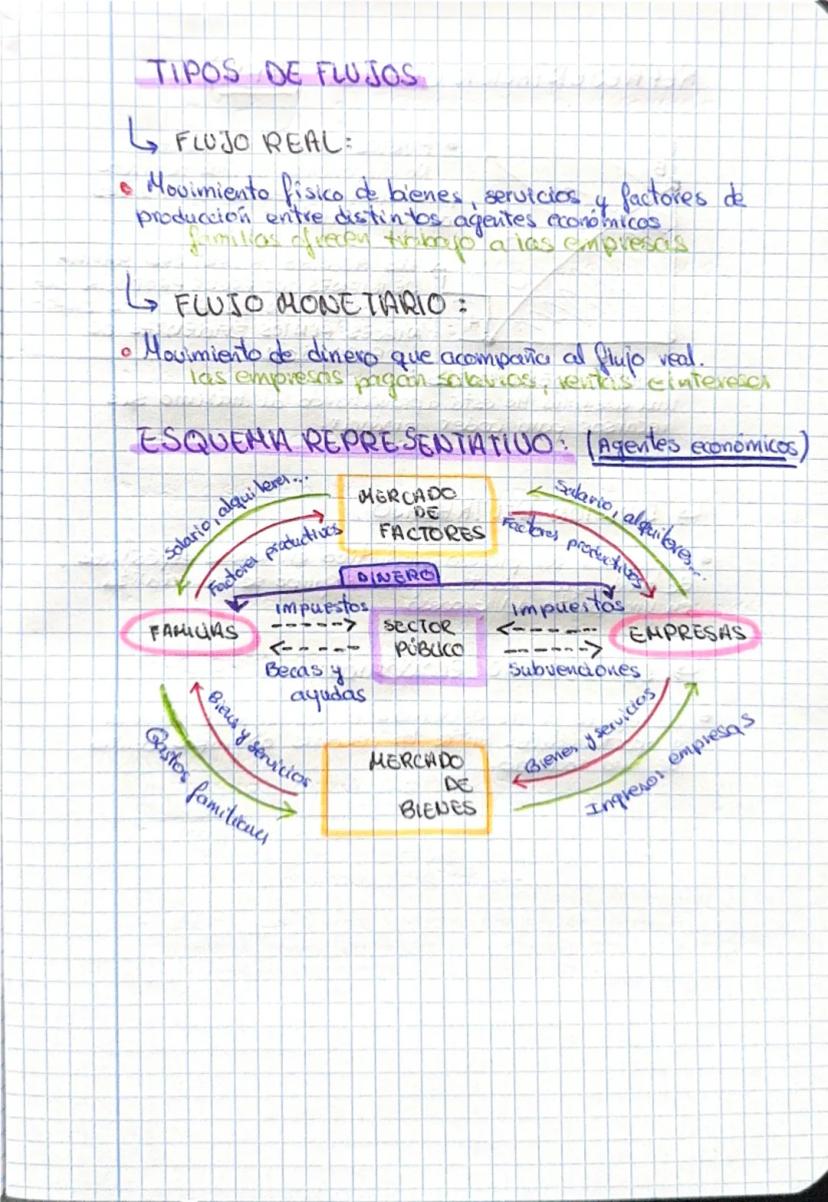 TIPOS DE FLUJOS
↳ FLUJO REAL:
• Movimiento físico de bienes, servicios y factores de
producción entre distintos agentes económicos
familias ofrecen trabajo a las empresas
↳ FLUJO MONETARIO:
• Movimiento de dinero que acompaña al flujo real.
las empresas pagan salarios, rentas e intereses
ESQUEMA REPRESENTATIVO: (Agentes económicos)
Salario, alquileres...
Factores productivos
MERCADO
DE
FACTORES
Salario, alquileres...
Factores productivos
DINERO
FAMILIAS
Impuestos
Becas y
ayudas
SECTOR
PÚBLICO
Impuestos
Subvenciones
EMPRESAS
Bienes y servicios
Gastos familiares
MERCADO
DE
BIENES
Bienes y servicios
Ingresos empresas